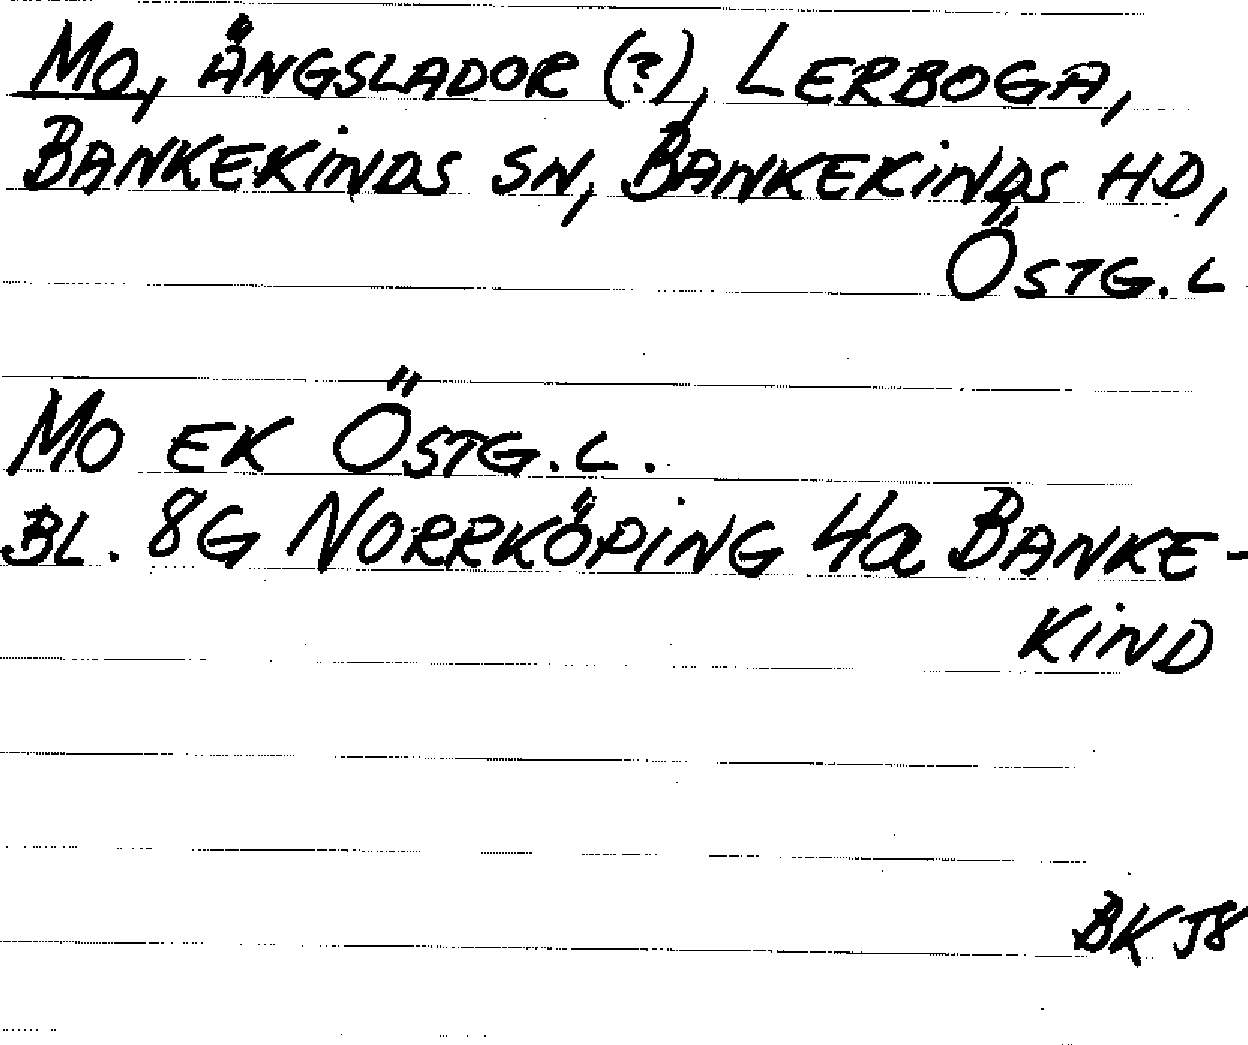 Mo, ÄNGSLADOR (?), LERBOGA,
BANKEKINDS SN, BANKEKINDS HD,
ÖSTG. L
MO EK ÖSTG. L.
BL. 8G NORRKÖPING 4a BANKE-
KIND
BKJ8